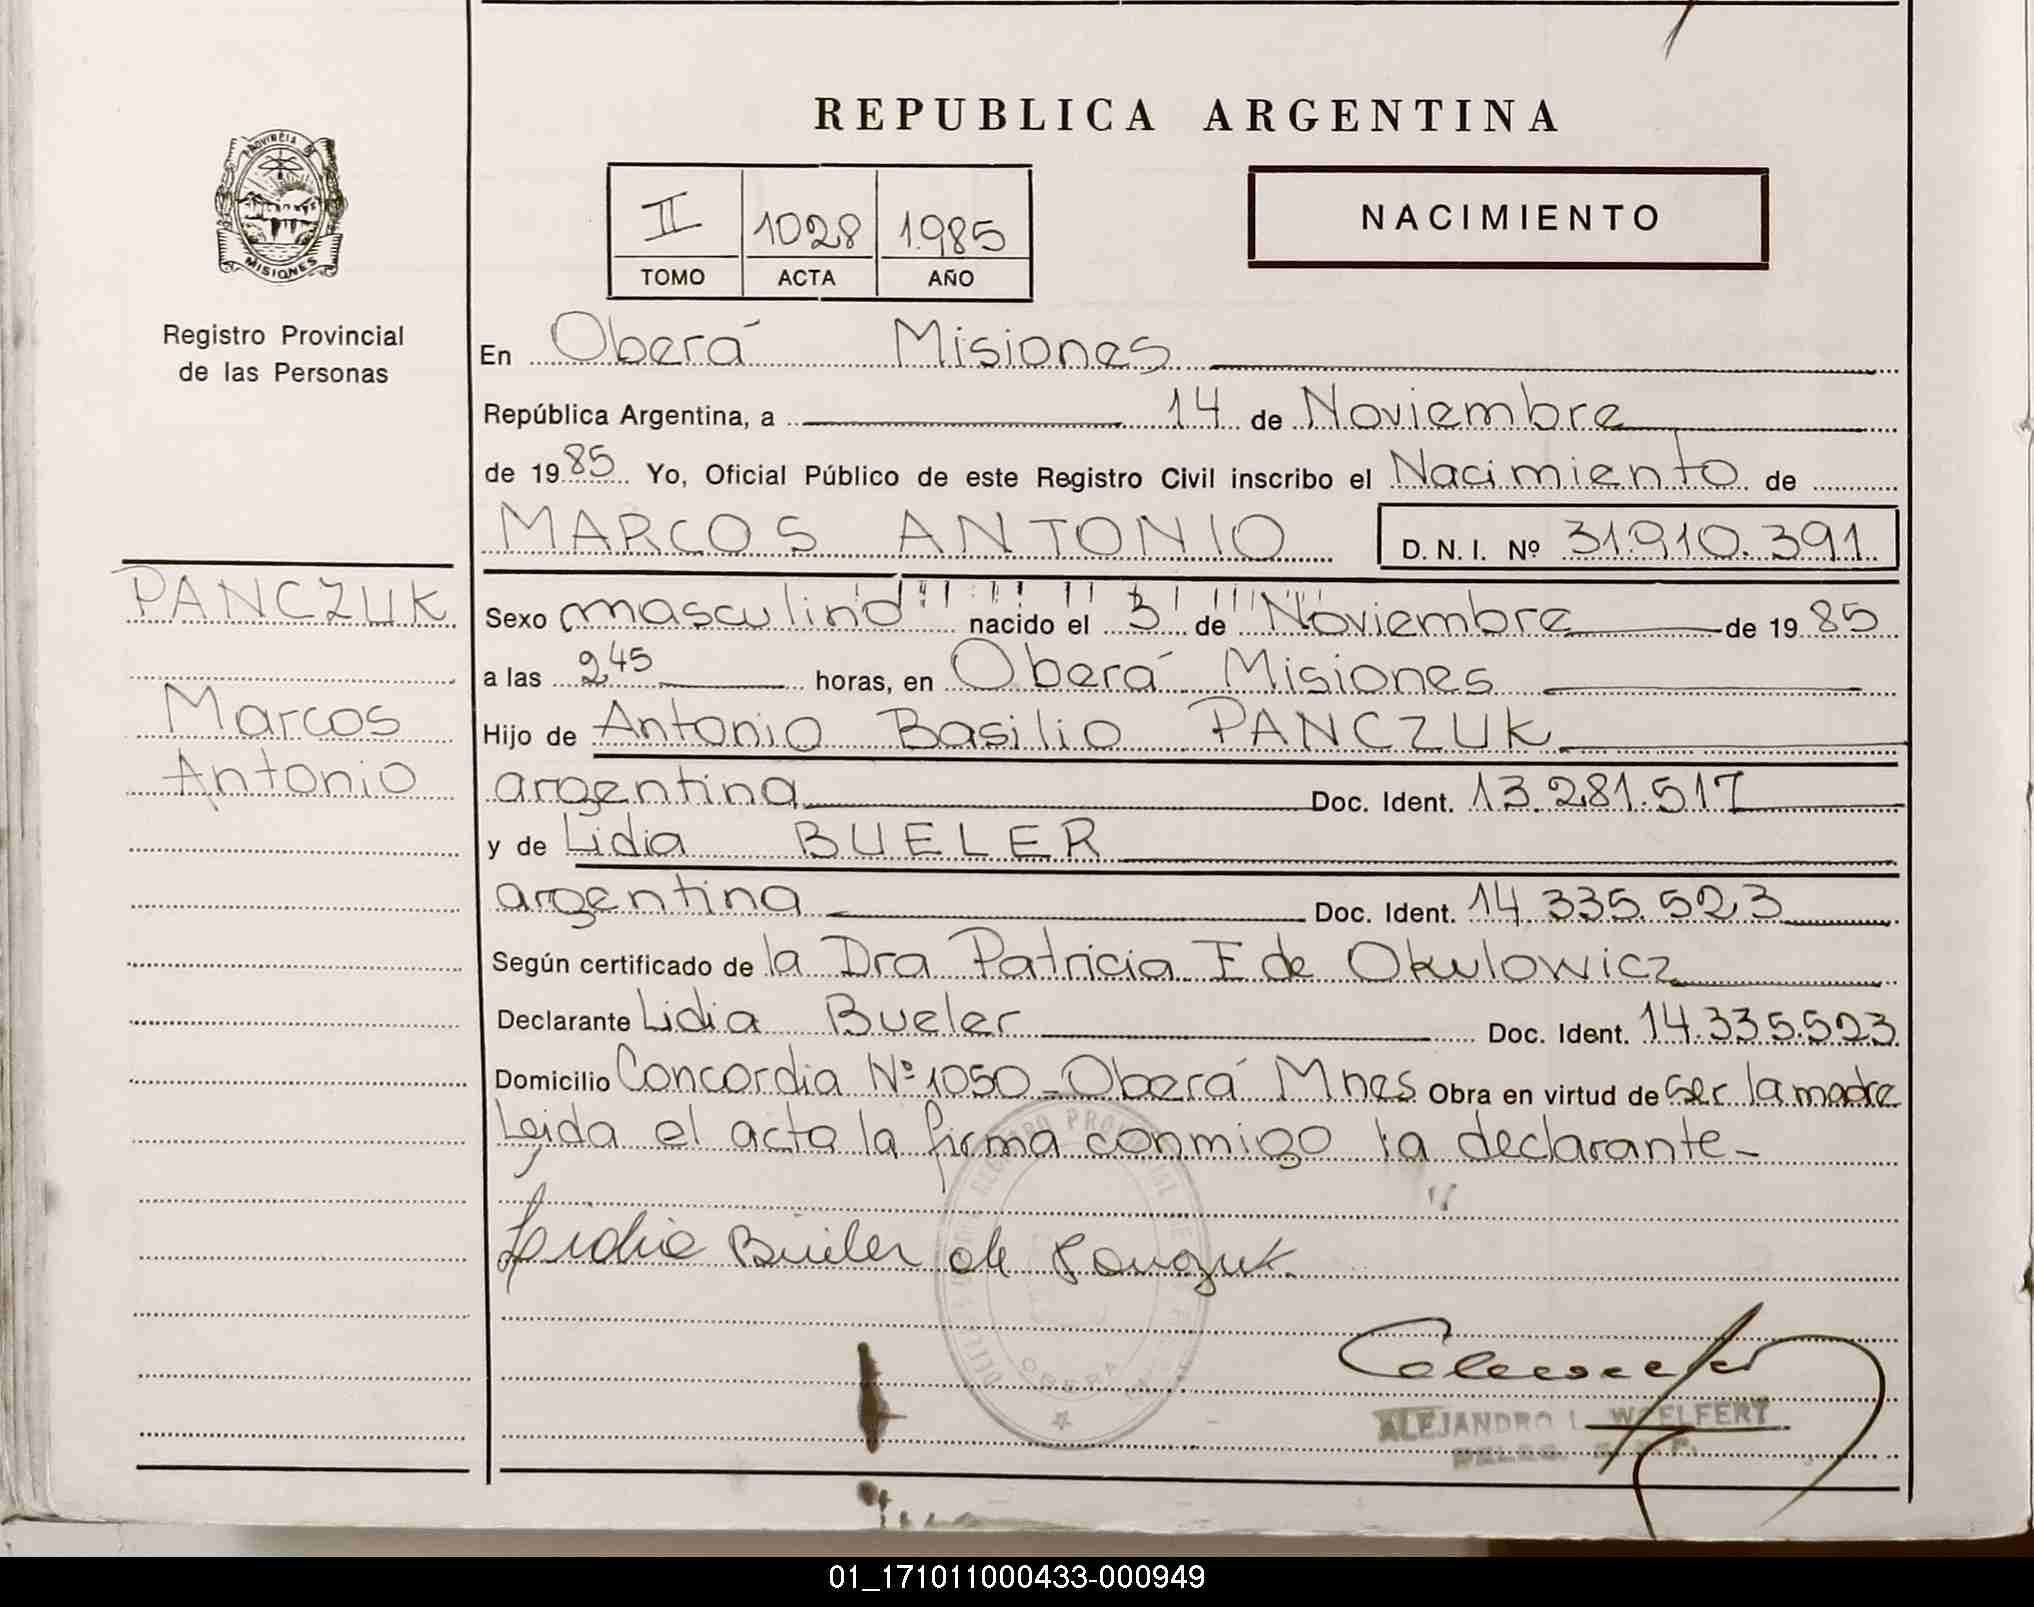 REPUBLICA ARGENTINA
PROVINCIA DE
MISIONES
Registro Provincial
de las Personas
II 1028 1.985
TOMO ACTA AÑO
NACIMIENTO
En Oberá Misiones
República Argentina, a 14 de Noviembre
de 1985 Yo, Oficial Público de este Registro Civil inscribo el Nacimiento de
MARCOS ANTONIO D.N.I. Nº 31.910.391.
PANCZUK
Marcos
Antonio
Sexo masculino nacido el 3 de Noviembre de 1985
a las 2,45 horas, en Oberá Misiones
Hijo de Antonio Basilio PANCZUK
argentina Doc. Ident. 13.281.517
y de Lidia BUELER
argentina Doc. Ident. 14.335.523
Según certificado de la Dra Patricia F de Okulowicz
Declarante Lidia Bueler Doc. Ident. 14.335.523
Domicilio Concordia Nº 1050 - Oberá Mnes Obra en virtud de ser la madre
Leida el acta la firma conmigo la declarante -
Lidia Bueler de Panczuk
OBERA
ALEJANDRO L. WOELFERT
01_171011000433-000949